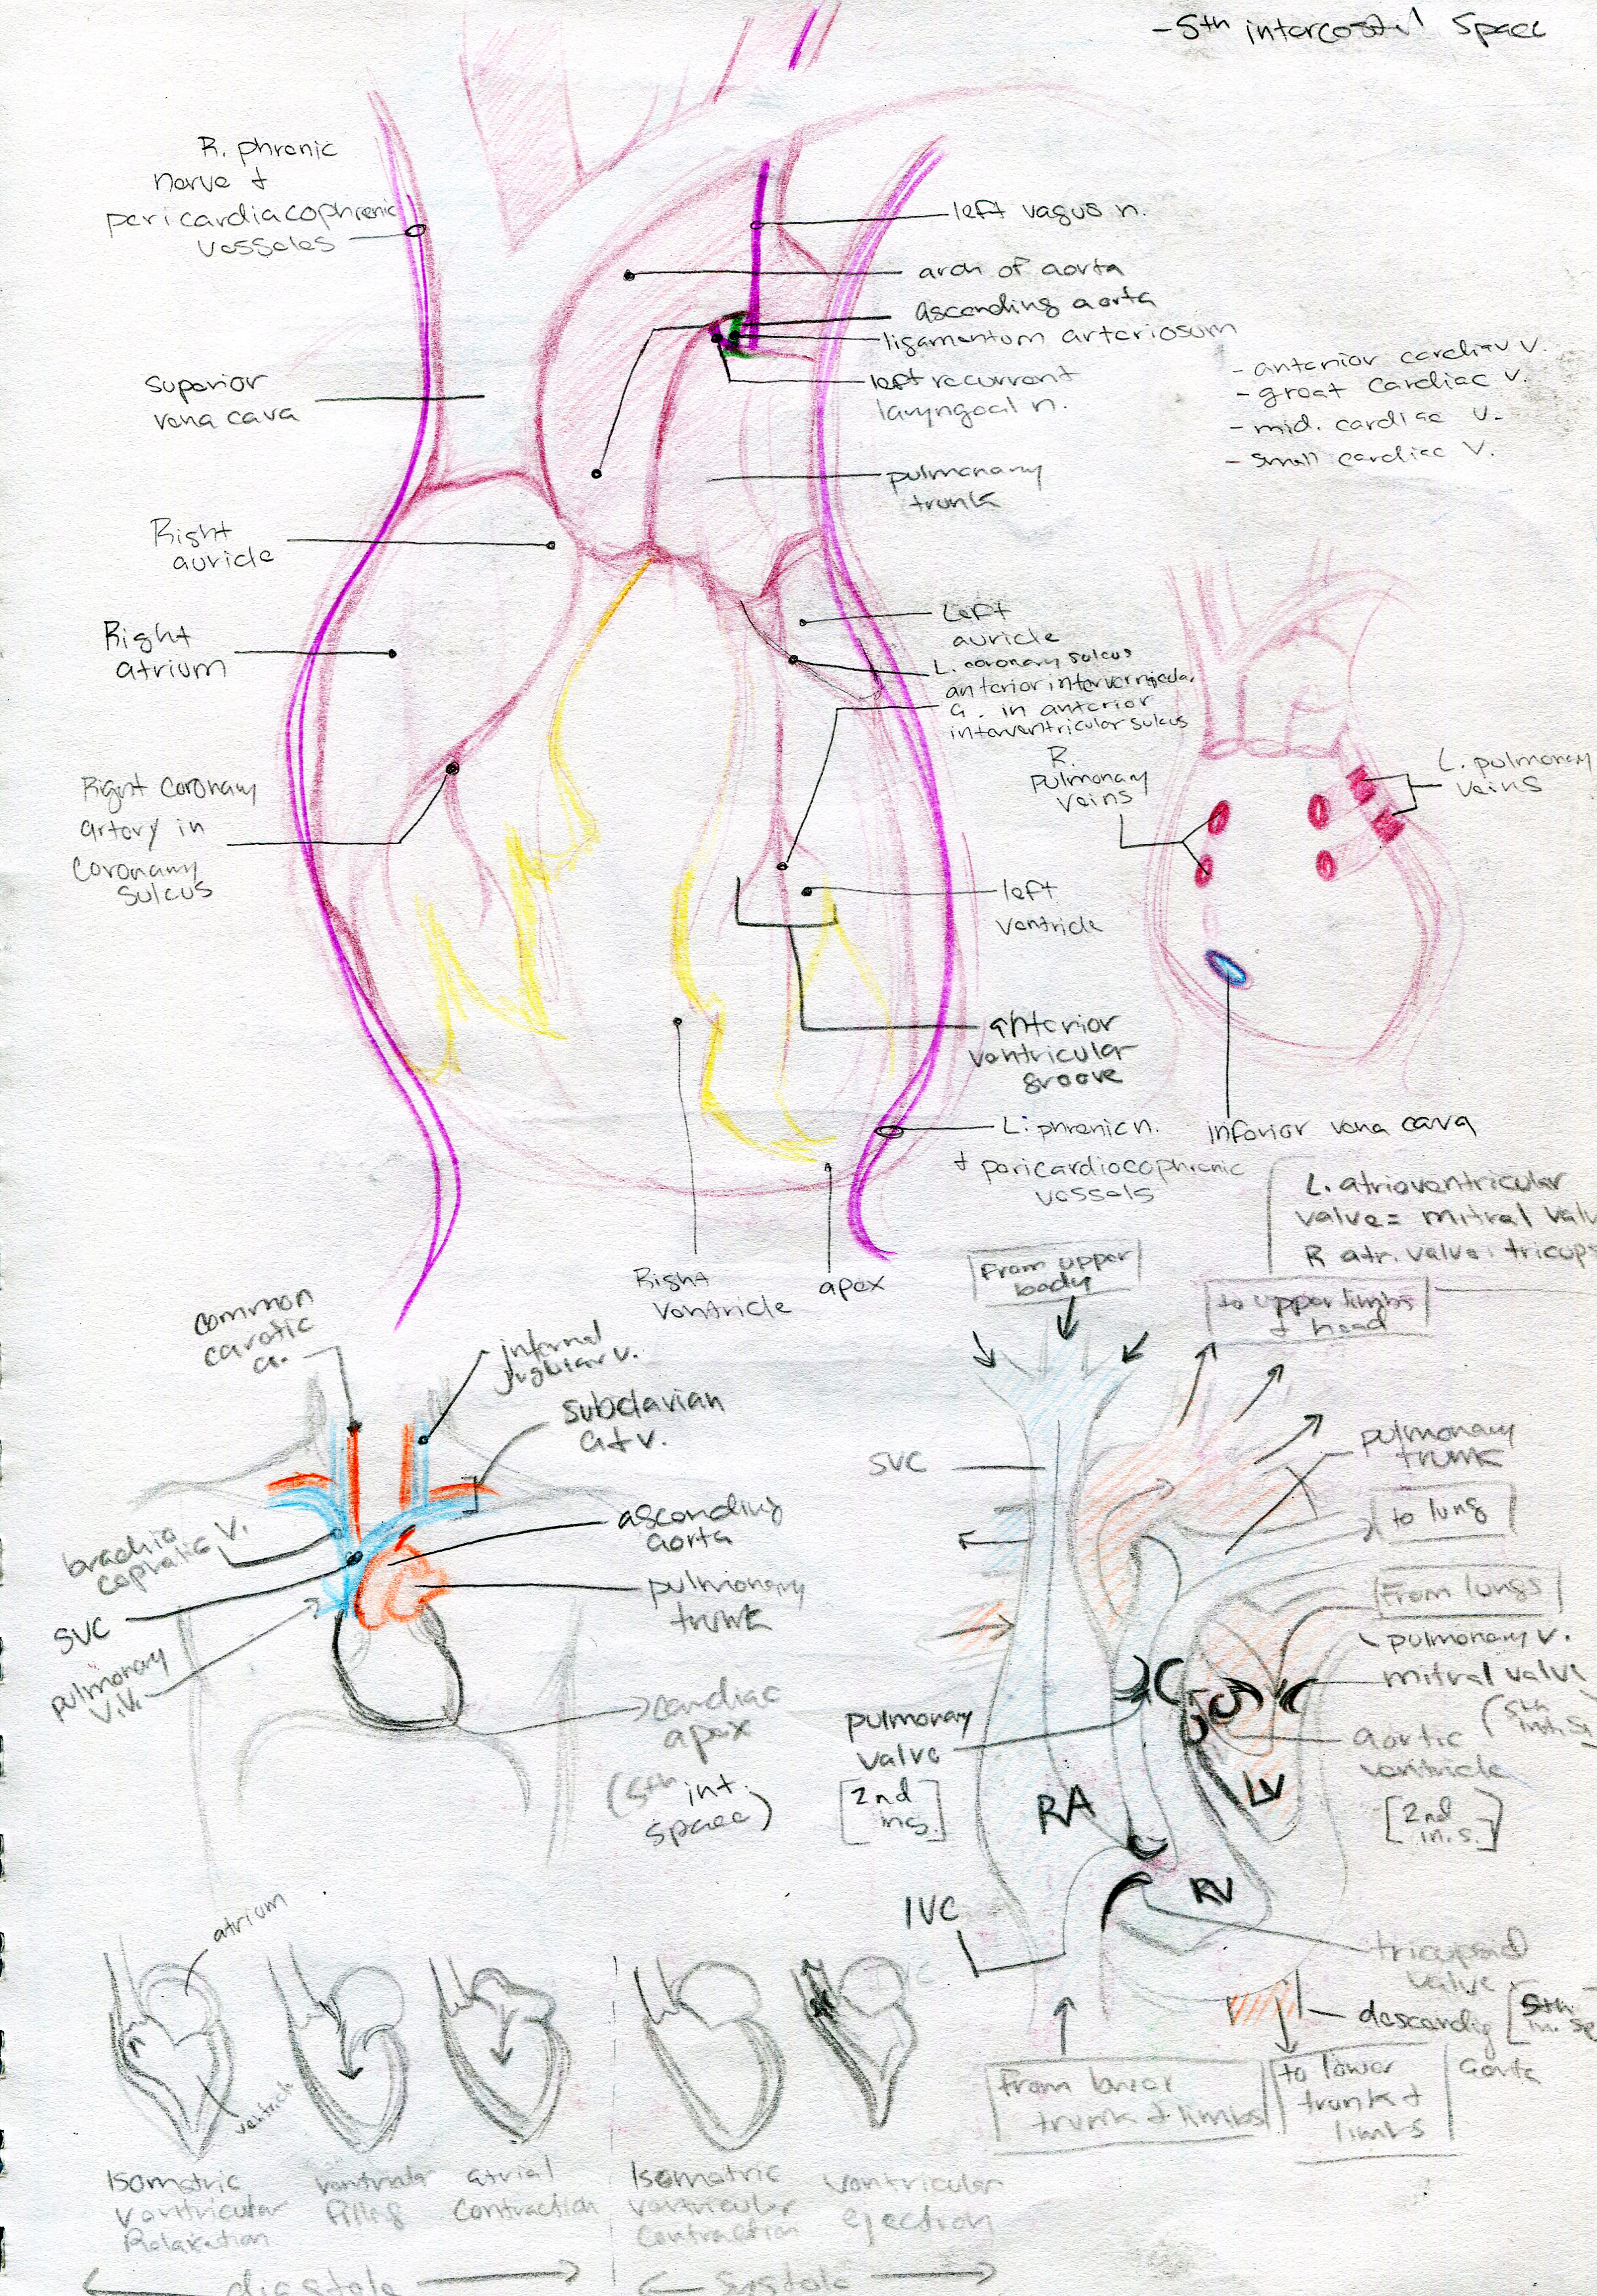 - 5th intercostal space
R. phrenic
nerve +
pericardiacophrenic
vessels
left vagus n.
arch of aorta
ascending aorta
ligamentum arteriosum
left recurrent
laryngeal n.
superior
vena cava
- anterior cardiac v.
- great cardiac v.
- mid. cardiac v.
- small cardiac v.
pulmonary
trunk
Right
auricle
Left
auricle
Right
atrium
L. coronary sulcus
anterior interventricular
a. in anterior
interventricular sulcus
R.
pulmonary
veins
L. pulmonary
veins
Right coronary
artery in
coronary
sulcus
left
ventricle
anterior
ventricular
groove
L. phrenic n.
+ pericardiocophrenic
vessels
inferior vena cava
L. atrioventricular
valve = mitral valv
R atr. valve: tricups
Right
ventricle
apex
From upper
body
to upper limbs
+ head
common
carotic
a.
internal
juglular v.
subclavian
a + v.
SVC
pulmonary
trunk
to lung
ascending
aorta
brachio
cephalic v.
pulmonary
trunk
SVC
pulmonary
v.v.
From lungs
pulmonary v.
mitral valve
(5th
int. s
cardiac
apex
(5th int.
space)
pulmonary
valve
[2nd
ins.]
aortic
ventricle
[2nd
in.s.]
RA
LV
RV
IVC
tricupsid
valve
[5th
in. sp
descendig
aorta
From lower
trunk + limbs
to lower
trunk +
limbs
atrium
ventricle
Isometric
ventricular
Relaxation
ventricular
filling
atrial
contraction
Isometric
ventricular
contraction
ventricular
ejection
diastole
systole